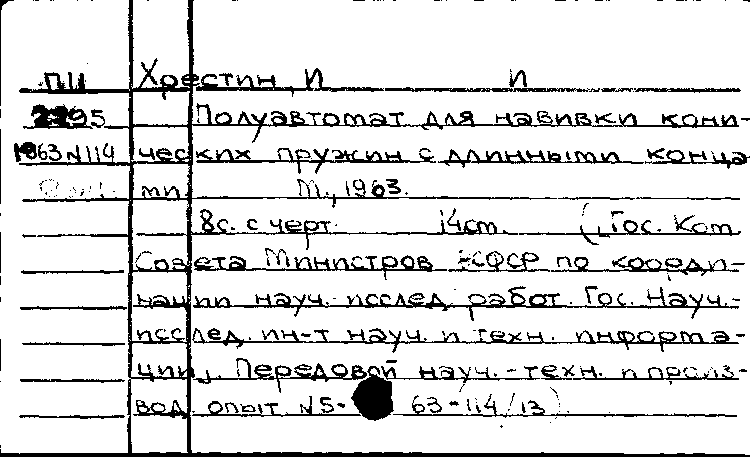 П11 Хрестин, И И
2295 Полуавтомат для навивки кони-
1963 N114 ческих пружин с длинными конца
ми М., 1963.
8с. с черт. 14см. (Гос. Ком.
Совета Министров РСФСР по коорди-
нации науч.-исслед. работ. Гос. Науч.-
исслед. ин-т науч. и техн. информа-
ции. Передовой науч.-техн. и произ-
вод. опыт N5- 63-114/13)